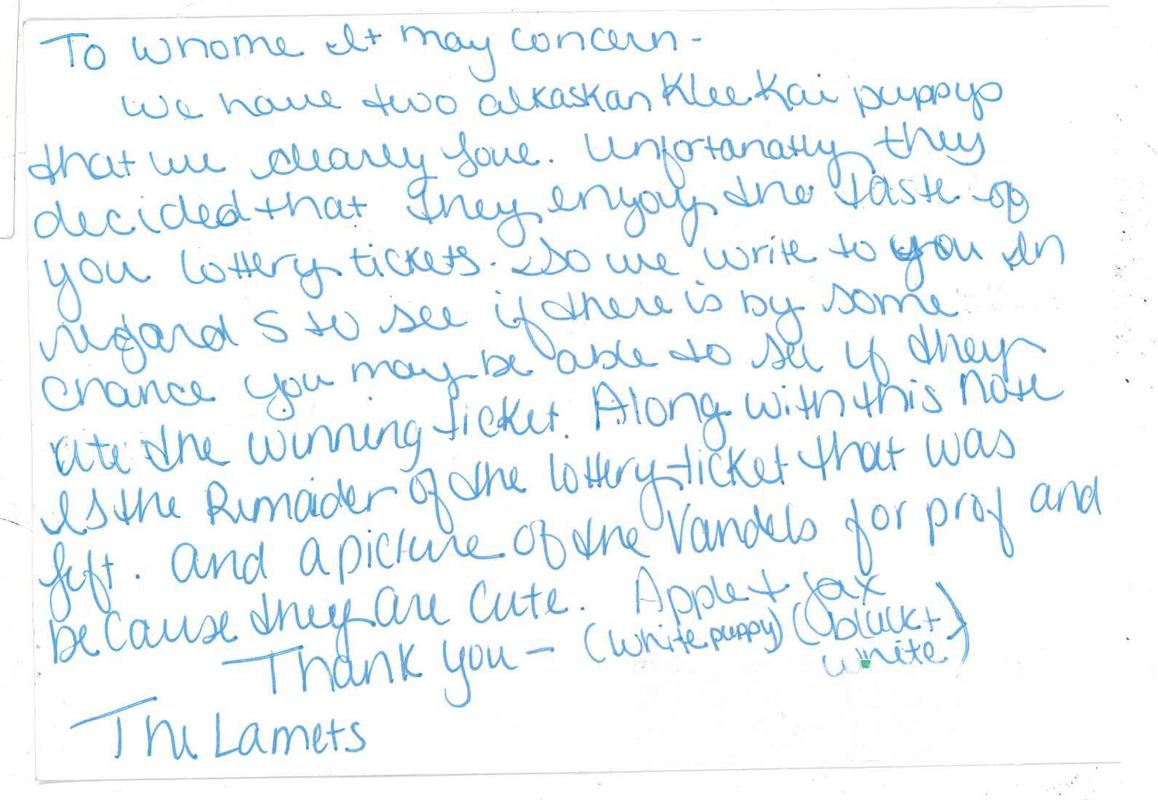 To whome It may concern-
we have two alkaskan Klee Kai puppys
that we dearly love. Unfortanatly they
decided that they enjoy the taste of
you lottery tickets. So we write to you in
regard s to see if there is by some
chance you may be able to see if they
ate the winning ticket. Along with this note
Is the Remaider of the lottery ticket that was
left. And a picture of the Vandels for prof and
because they are cute. Apple + Jax
Thank you - (White puppy) (black +
white)
The Lamets